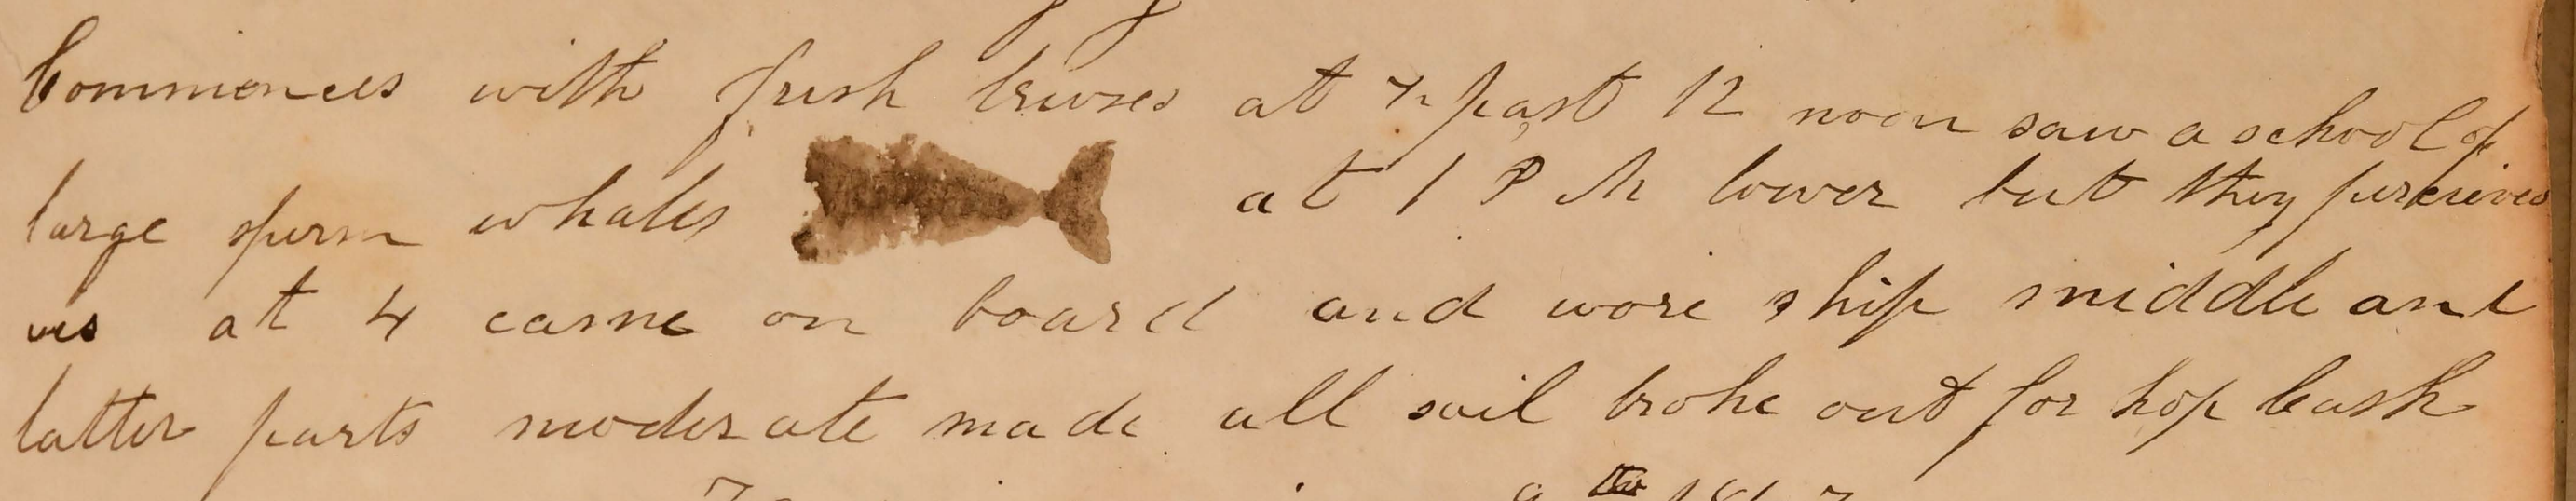 Commences with fresh breuses at ½ past 12 noon saw a school of
large sperm whales at 1 P M lower but they perceived
us at 4 came on board and wore ship middle and
latter parts moderate made all sail broke out for hop Cask